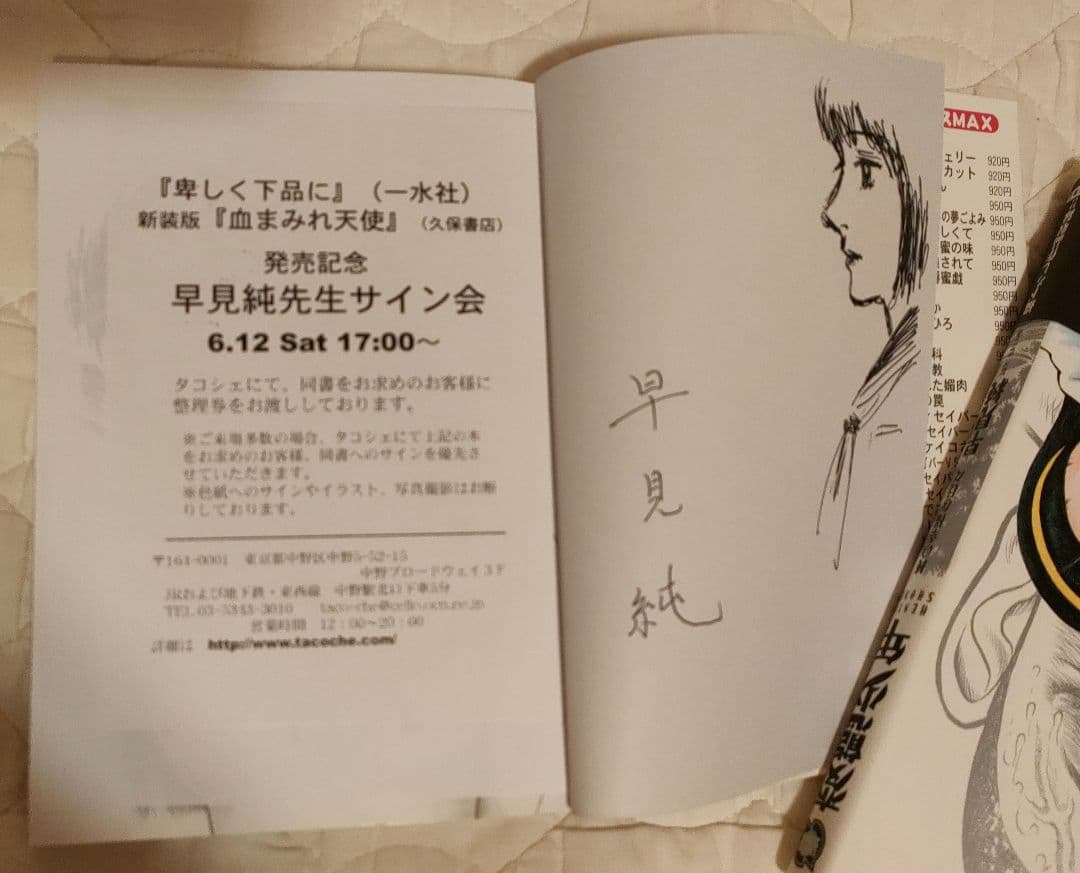 『卑しく下品に』(一水社)
新装版『血まみれ天使』(久保書店)
発売記念
早見純先生サイン会
6.12 Sat 17:00～
タコシェにて、同書をお求めのお客様に
整理券をお渡ししております。
※ご来場多数の場合、タコシェにて上記の本
をお求めのお客様、同書へのサインを優先さ
せていただきます。
※色紙へのサインやイラスト、写真撮影はお断
りしております。
〒164-0001 東京都中野区中野5-52-15
中野ブロードウェイ3F
JRおよび地下鉄・東西線 中野駅北口下車5分
TEL 03-5343-3010
営業時間 12:00～20:00
詳細は http://www.tacoche.com/
早見純
MAX
ェリー 920円
カット 920円
920円
950円
の夢ごよみ 950円
しくて 950円
蜜の味 950円
されて 950円
蜜戯 950円
950円
ひろ
科
教
た媚肉
の罠
セイバー
セイバー
ケイコ